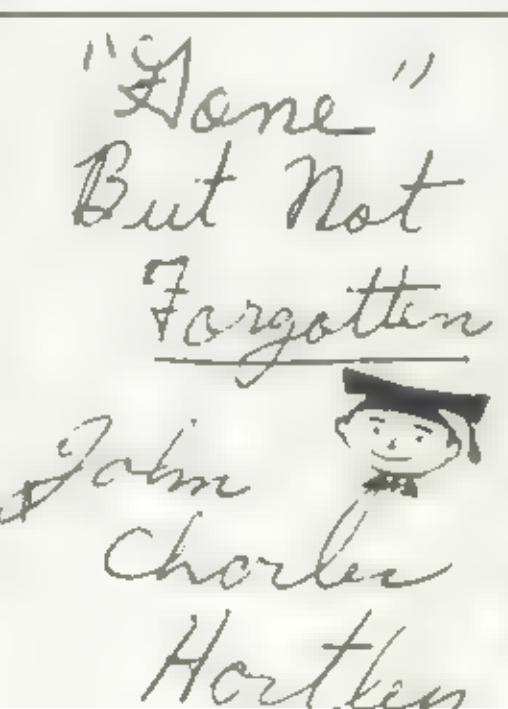 "Gone"
But Not
Forgotten
John
Charles